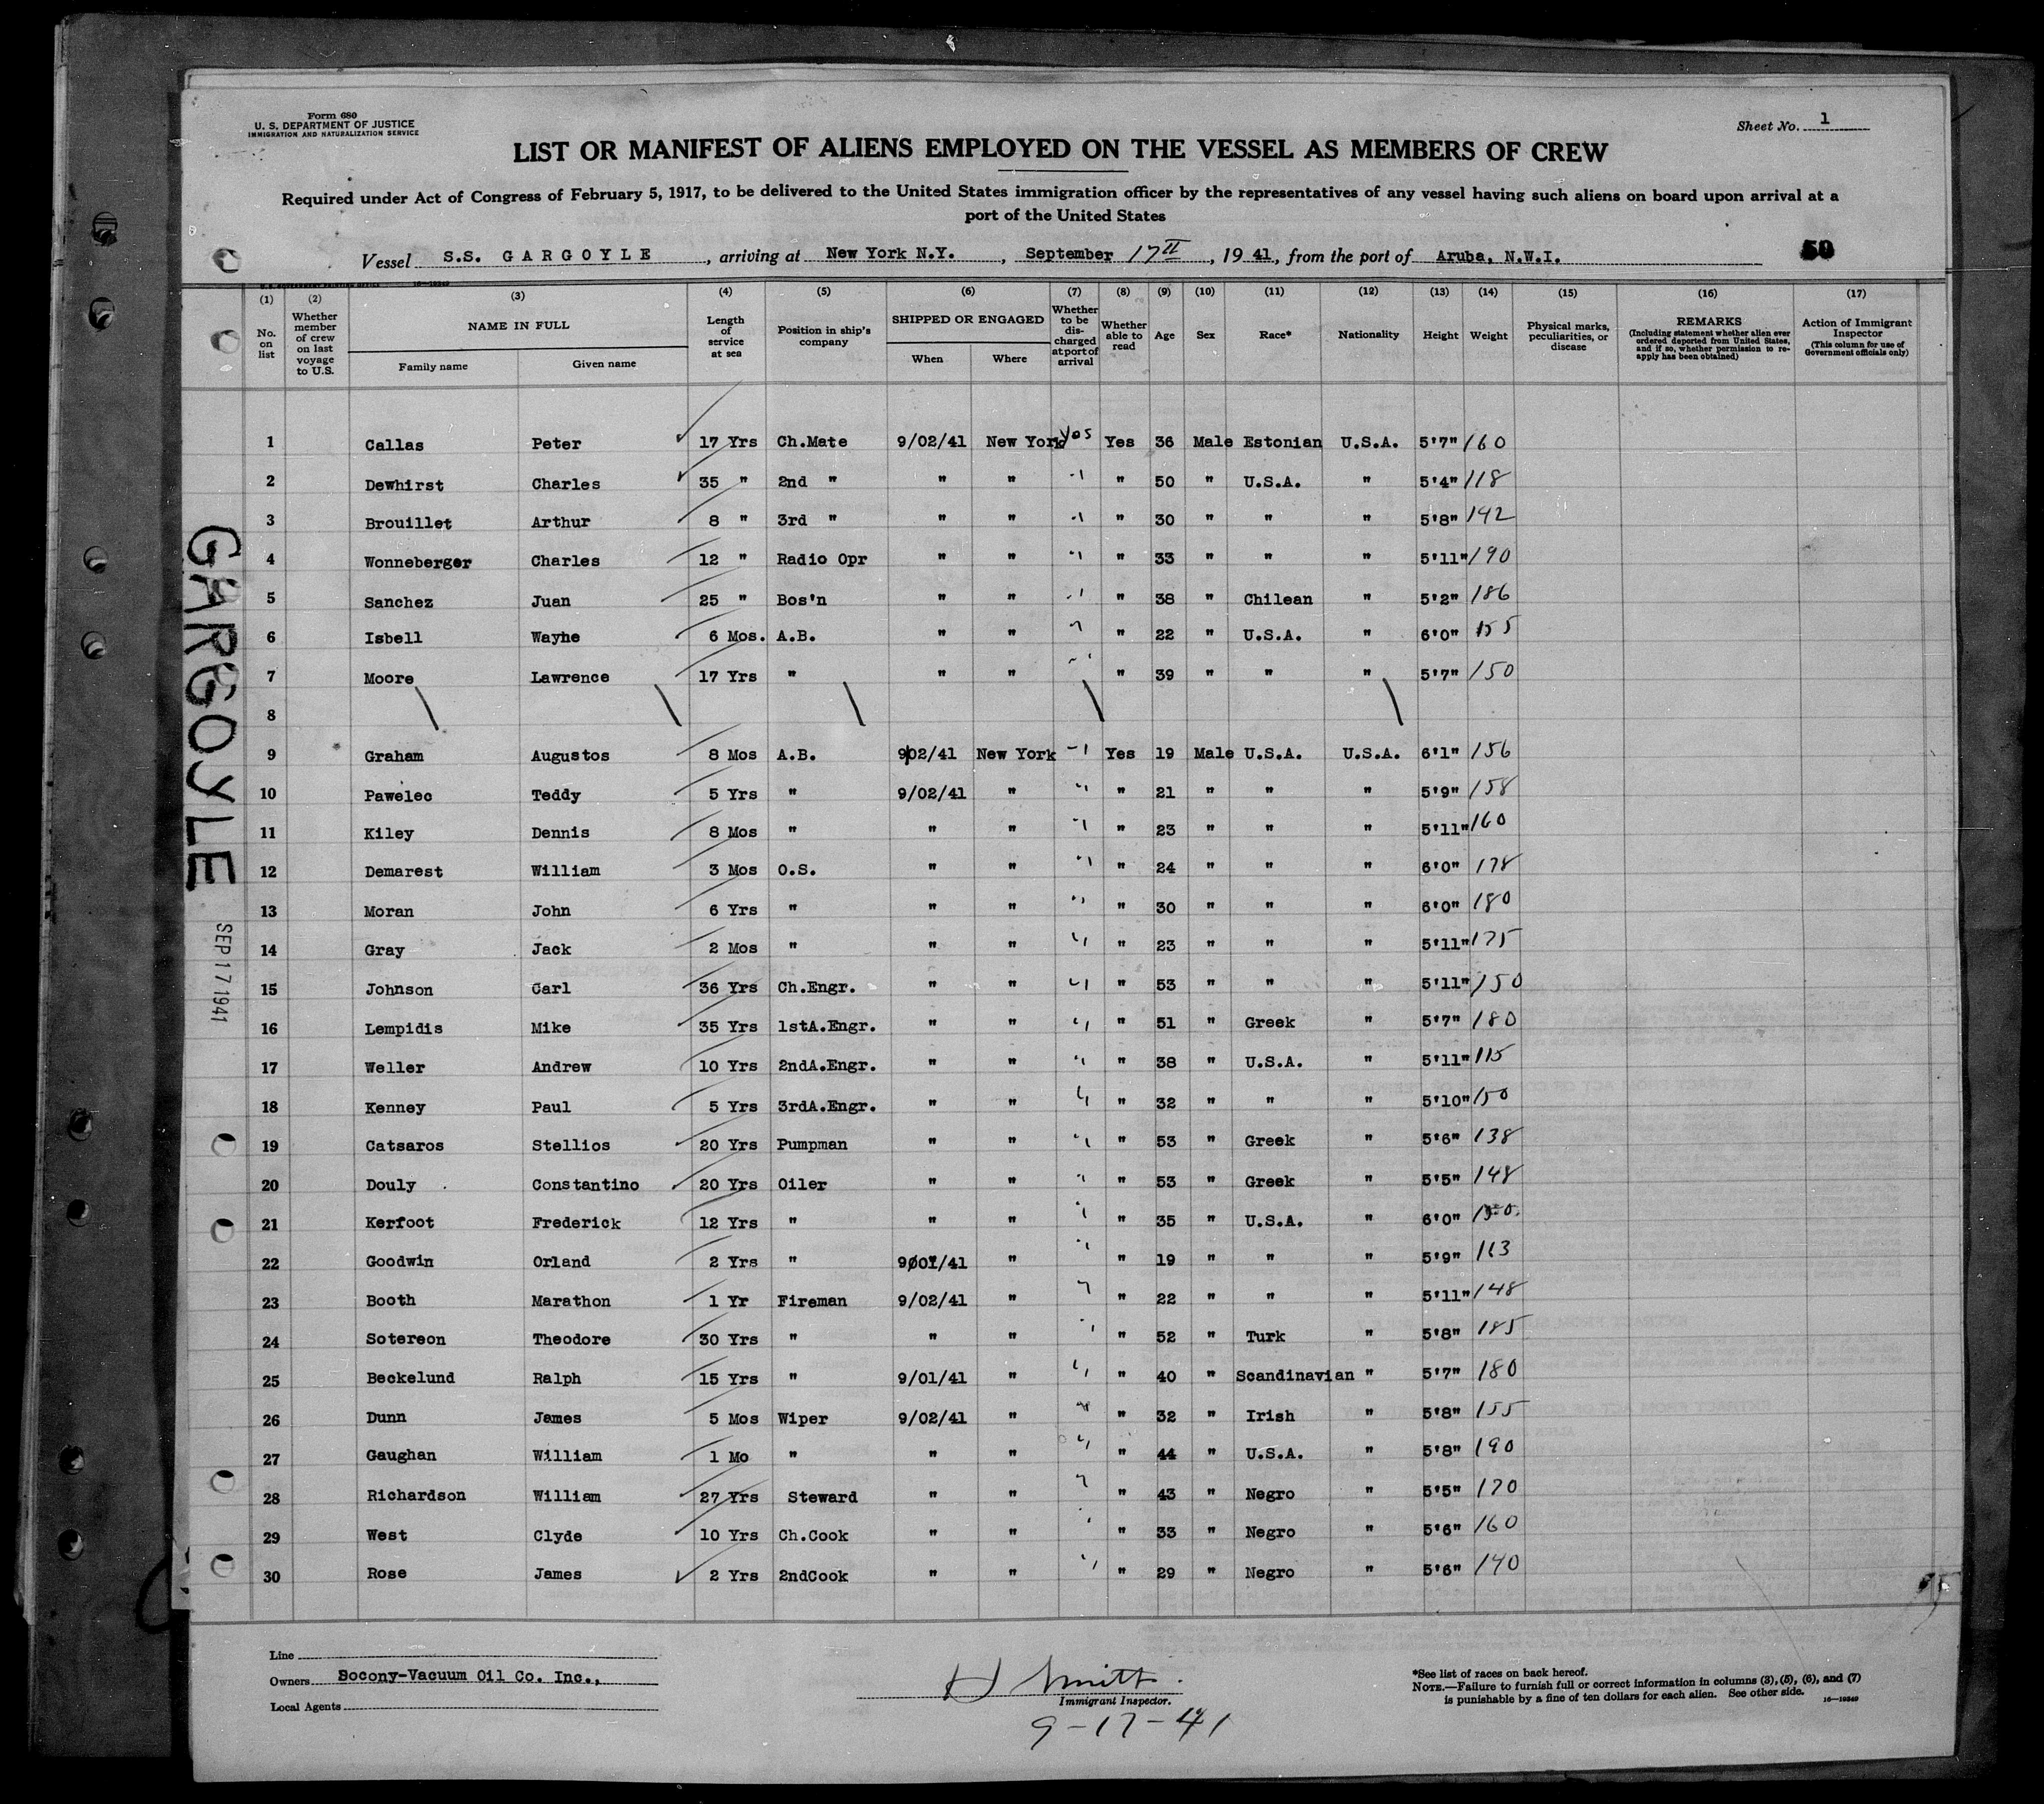 Form 680
U. S. DEPARTMENT OF JUSTICE
IMMIGRATION AND NATURALIZATION SERVICE
Sheet No. 1
LIST OR MANIFEST OF ALIENS EMPLOYED ON THE VESSEL AS MEMBERS OF CREW
Required under Act of Congress of February 5, 1917, to be delivered to the United States immigration officer by the representatives of any vessel having such aliens on board upon arrival at a
port of the United States
Vessel S.S. GARGOYLE, arriving at New York N.Y., September 17, 1941, from the port of Aruba, N.W.I.
50
(1) (2) (3) (4) (5) (6) (7) (8) (9) (10) (11) (12) (13) (14) (15) (16) (17)
No. on list
Whether member of crew on last voyage to U.S.
NAME IN FULL
Family name
Given name
Length of service at sea
Position in ship's company
SHIPPED OR ENGAGED
When
Where
Whether to be discharged at port of arrival
Whether able to read
Age
Sex
Race*
Nationality
Height
Weight
Physical marks, peculiarities, or disease
REMARKS
(Including statement whether alien ever ordered deported from United States, and if so, whether permission to re-apply has been obtained)
Action of Immigrant Inspector
(This column for use of Government officials only)
1 Callas Peter 17 Yrs Ch.Mate 9/02/41 New York Yes Yes 36 Male Estonian U.S.A. 5'7" 160
2 Dewhirst Charles 35 " 2nd " " " " " 50 " U.S.A. " 5'4" 118
3 Brouillet Arthur 8 " 3rd " " " " " 30 " " " 5'8" 142
4 Wonneberger Charles 12 " Radio Opr " " " " 33 " " " 5'11" 190
5 Sanchez Juan 25 " Bos'n " " " " 38 " Chilean " 5'2" 186
6 Isbell Wayne 6 Mos. A.B. " " " " 22 " U.S.A. " 6'0" 155
7 Moore Lawrence 17 Yrs " " " " " 39 " " " 5'7" 150
8 \ \ \ \ \
9 Graham Augustos 8 Mos A.B. 9/02/41 New York " Yes 19 Male U.S.A. U.S.A. 6'1" 156
10 Pawelec Teddy 5 Yrs " 9/02/41 " " " 21 " " " 5'9" 158
11 Kiley Dennis 8 Mos " " " " " 23 " " " 5'11" 160
12 Demarest William 3 Mos O.S. " " " " 24 " " " 6'0" 178
13 Moran John 6 Yrs " " " " " 30 " " " 6'0" 180
14 Gray Jack 2 Mos " " " " " 23 " " " 5'11" 175
15 Johnson Carl 36 Yrs Ch.Engr. " " " " 53 " " " 5'11" 150
16 Lempidis Mike 35 Yrs 1stA.Engr. " " " " 51 " Greek " 5'7" 180
17 Weller Andrew 10 Yrs 2ndA.Engr. " " " " 38 " U.S.A. " 5'11" 115
18 Kenney Paul 5 Yrs 3rdA.Engr. " " " " 32 " " " 5'10" 150
19 Catsaros Stellios 20 Yrs Pumpman " " " " 53 " Greek " 5'6" 138
20 Douly Constantino 20 Yrs Oiler " " " " 53 " Greek " 5'5" 148
21 Kerfoot Frederick 12 Yrs " " " " " 35 " U.S.A. " 6'0"
22 Goodwin Orland 2 Yrs " 9/01/41 " " " 19 " " " 5'9"
23 Booth Marathon 1 Yr Fireman 9/02/41 " " " 22 " " " 5'11" 148
24 Sotereon Theodore 30 Yrs " " " " " 52 " Turk " 5'8" 185
25 Beckelund Ralph 15 Yrs " 9/01/41 " " " 40 " Scandinavian " 5'7" 180
26 Dunn James 5 Mos Wiper 9/02/41 " " " 32 " Irish " 5'8" 155
27 Gaughan William 1 Mo " " " " " 44 " U.S.A. " 5'8" 190
28 Richardson William 27 Yrs Steward " " " " 43 " Negro " 5'5" 170
29 West Clyde 10 Yrs Ch.Cook " " " " 33 " Negro " 5'6" 160
30 Rose James 2 Yrs 2ndCook " " " " 29 " Negro " 5'6" 140
GARGOYLE
SEP 17 1941
Line
Owners Socony-Vacuum Oil Co. Inc.,
Local Agents
H Smith
Immigrant Inspector.
9-17-41
*See list of races on back hereof.
NOTE.—Failure to furnish full or correct information in columns (3), (5), (6), and (7)
is punishable by a fine of ten dollars for each alien. See other side.
16—19249